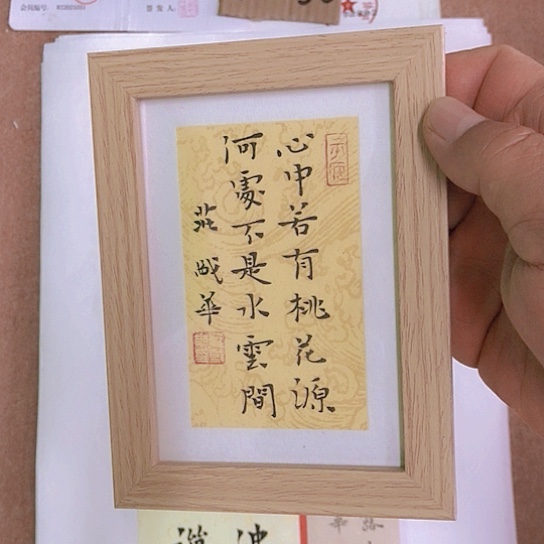 会员编号
签发人
心中若有桃花源
何處不是水雲間
莊战華